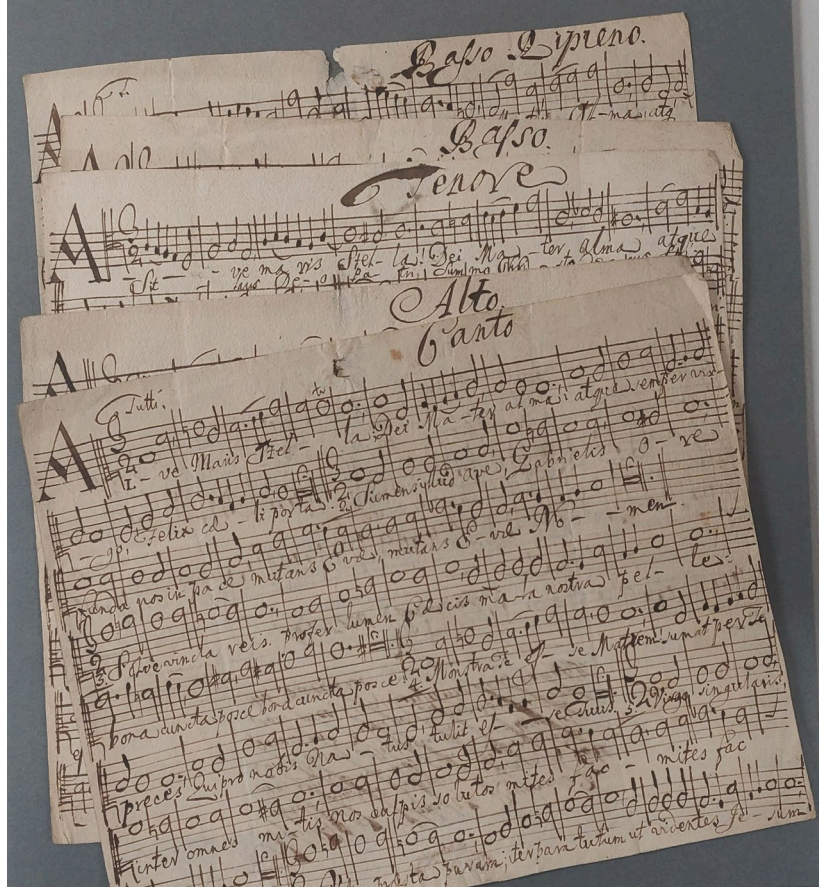 Basso Ripieno.
Al-ma, atq
Basso.
Tenore
A
Sit - - ve ma ris Stel- la! Dei Ma - ter, alma, atque
Alto.
Canto
Tutti.
A
1.- ve Maris Stel - la Dei Ma - ter al ma; atque semper vir-
- go, Felix cæ - li porta. 2. Sumens illud ave, Gabrielis O - re
funda nos in pa ce mutans Evæ, mutans E - væ No - - men.
3. Solve vincla reis. profer lumen Cæcis ma-la nostra pel - le!
bona cuncta posce bona cuncta posce. 4. Monstra te es - se Matrem: sumat per Te
preces, Qui pro nobis Na - tus tulit es - se tuus. 5. Virgo singularis.
inter omnes mi-tis nos culpis solutos mites fac - mites fac
puram; iter para tutum ut videntes Je- sum